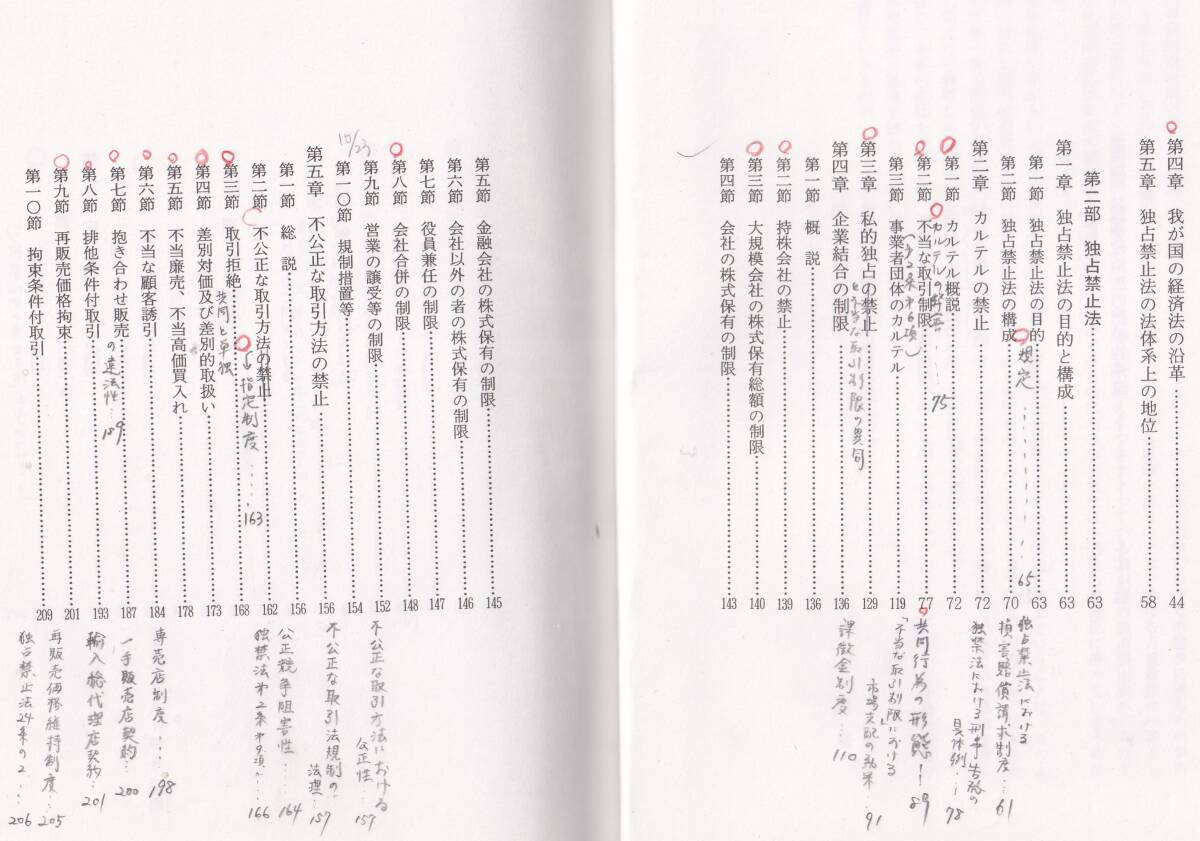 第四章 我が国の経済法の沿革 44
第五章 独占禁止法の法体系上の地位 58
第二部 独占禁止法 63
第一章 独占禁止法の目的と構成 63
第一節 独占禁止法の目的 63
規定 65
第二節 独占禁止法の構成 70
第二章 カルテルの禁止 72
第一節 カルテル概説 72
カルテルの弊害 75
第二節 不当な取引制限 77
(第2条第6項)
第三節 事業者団体のカルテル 119
第三章 私的独占の禁止 129
と不当な取引制限の異同
第四章 企業結合の制限 136
第一節 概説 136
第二節 持株会社の禁止 139
第三節 大規模会社の株式保有総額の制限 140
第四節 会社の株式保有の制限 143
独占禁止法における
損害賠償請求制度 61
独禁法における刑事告発の
具体例 78
共同行為の形態 89
「不当な取引制限」における
市場支配の効果 91
課徴金制度 110
第五節 金融会社の株式保有の制限 145
第六節 会社以外の者の株式保有の制限 146
第七節 役員兼任の制限 147
第八節 会社合併の制限 148
第九節 営業の譲受等の制限 152
10/23
第一〇節 規制措置等 154
第五章 不公正な取引方法の禁止 156
第一節 総説 156
第二節 不公正な取引方法の禁止 162
指定制度 163
第三節 取引拒絶 168
共同と単独
第四節 差別対価及び差別的取扱い 173
第五節 不当廉売、不当高価買入れ 178
第六節 不当な顧客誘引 184
第七節 抱き合わせ販売 187
の違法性 189
第八節 排他条件付取引 193
第九節 再販売価格拘束 201
第一〇節 拘束条件付取引 209
不公正な取引方法における
公正性 157
不公正な取引法規制の
法理 157
公正競争阻害性 164
独禁法第2条第9項 166
専売店制度 198
一手販売店契約 200
輸入総代理店契約 201
再販売価格維持制度 205
独占禁止法24条の2 206